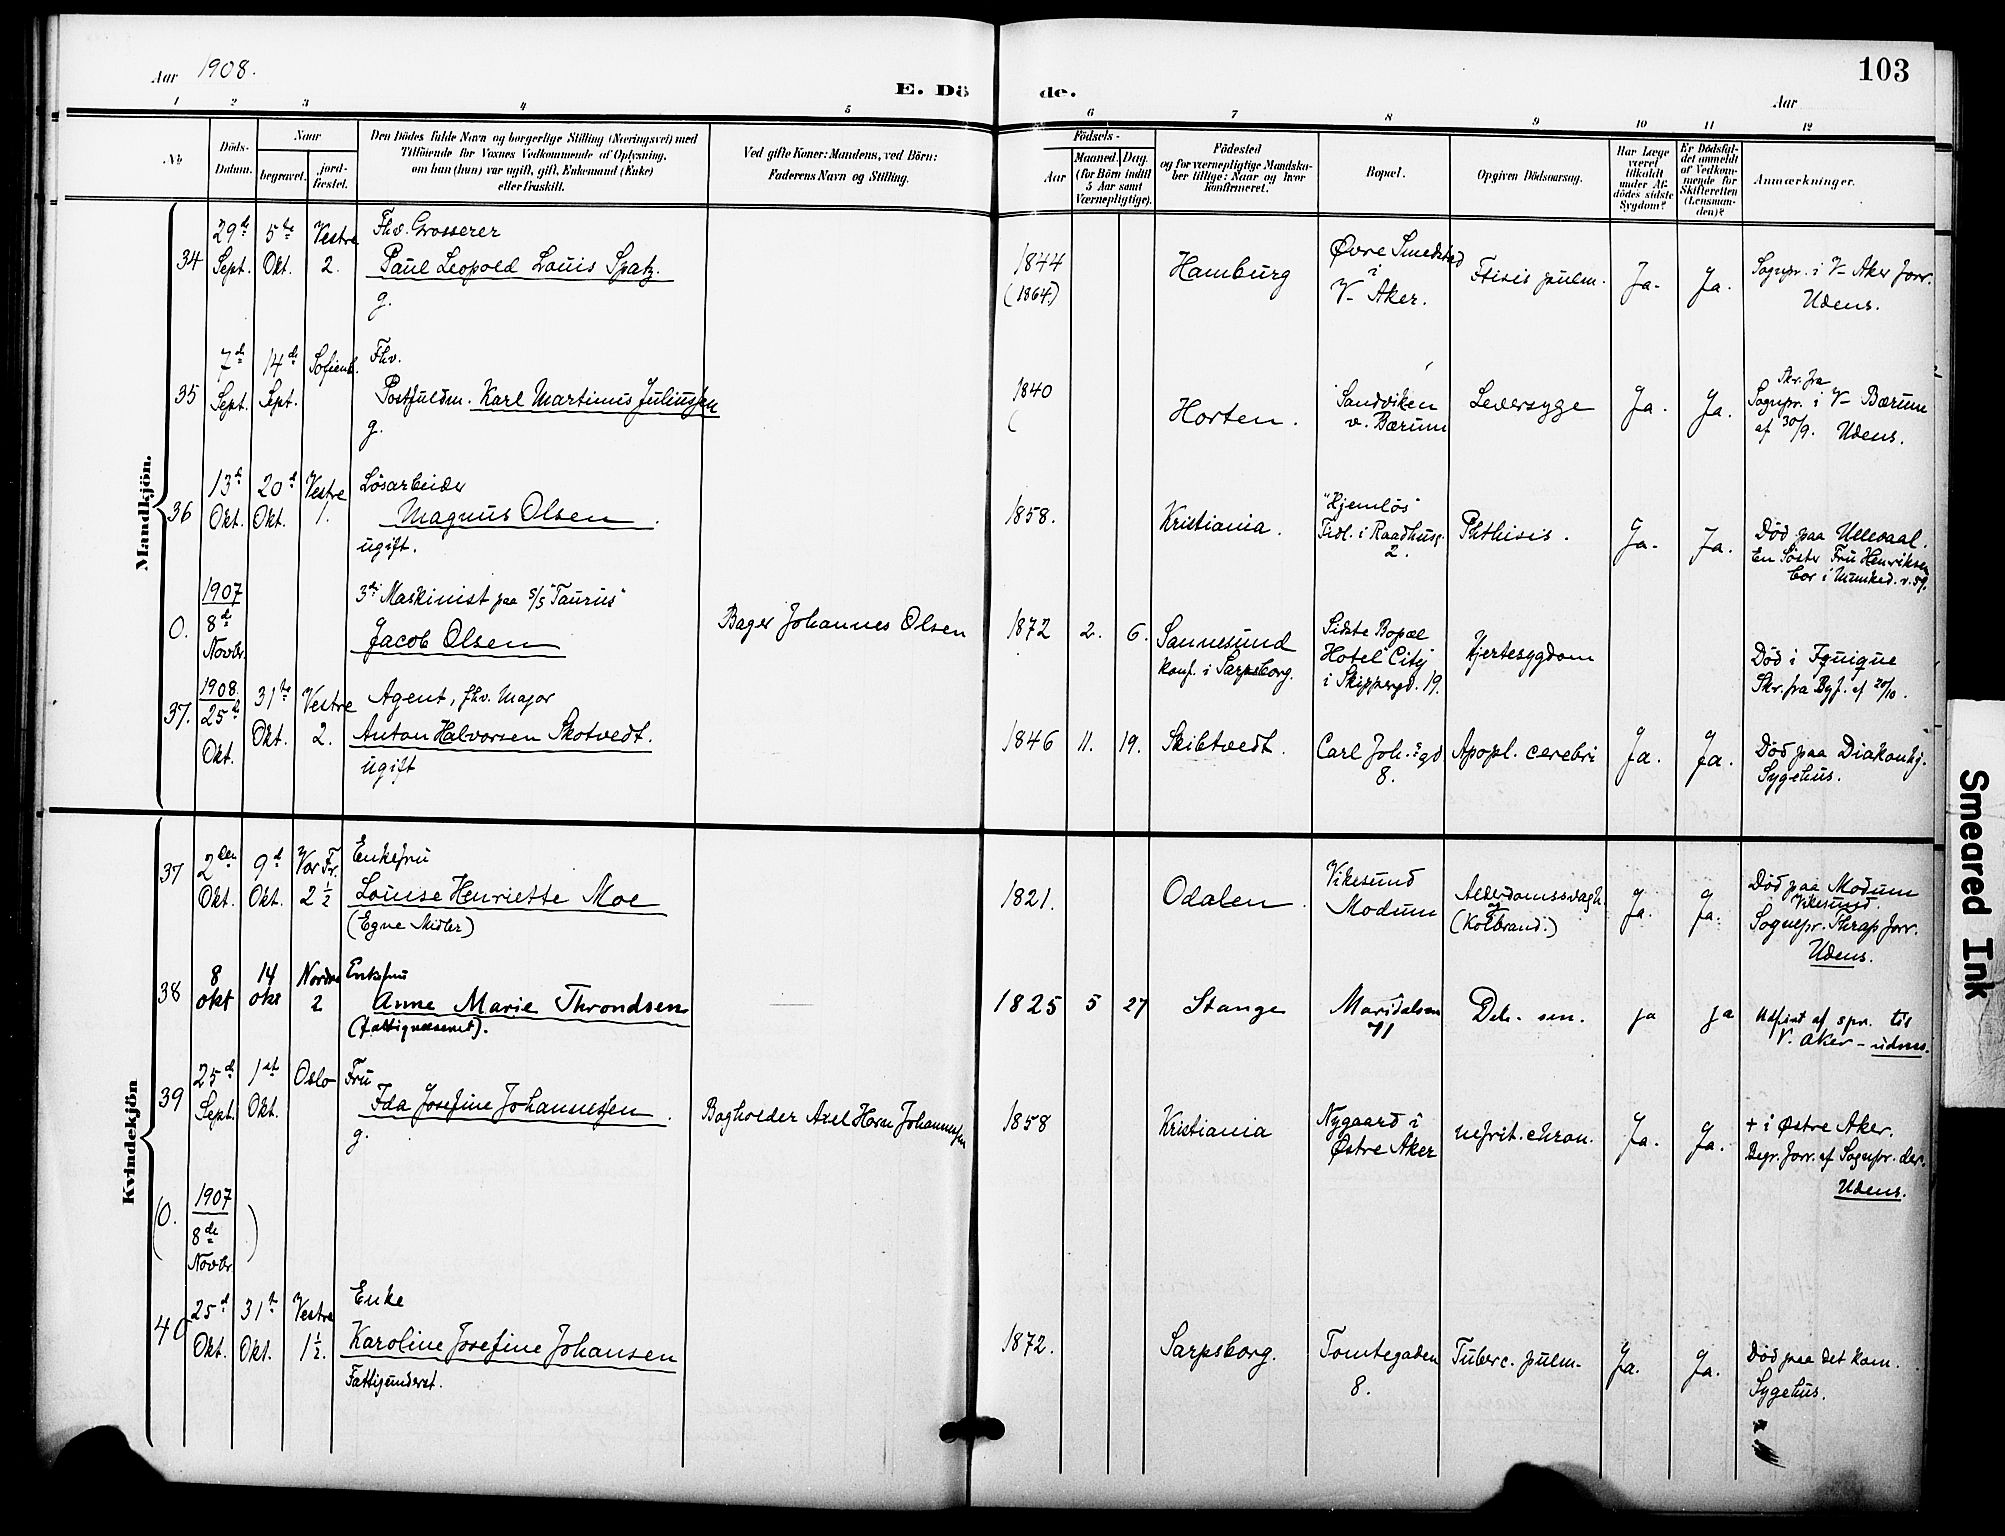 Aar 1908.
E. Dö de.
103
Aar
1 2 3 4 5 6 7 8 9 10 11 12
No
Döds-Datum.
Naar
begravet.
jord-fæstet.
Den Dödes fulde Navn og borgerlige Stilling (Næringsvei) med
Tilföiende for Voxnes Vedkommende af Oplysning,
om han (hun) var ugift, gift, Enkemand (Enke)
eller fraskilt.
Ved gifte Koner: Mandens, ved Börn:
Faderens Navn og Stilling.
Födsels-
Aar
Maaned. Dag.
(for Börn indtil
5 Aar samt
Værnepligtige).
Födested
og for værnepligtige Mandska-
ber tillige: Naar og hvor
konfirmeret.
Bopæl.
Opgiven Dödsaarsag.
Har Læge
været
tilkaldt
under Af-
dödes sidste
Sygdom?
Er Dödsfal-
det anmeldt
af Vedkom-
mende for
Skifteretten
(Lensman-
den)?
Anmærkninger.
Mandkjön.
34
29de Sept.
5te Okt.
Vestre 2.
Fhv. Grosserer
Paul Leopold Louis Spatz.
g.
1844
(1864)
Hamburg
Øvre Smedstad
i
V- Aker.
Ftisis pulm.
Ja.
Ja.
Sognpr. i V- Aker forr.
Udens.
35
7de Sept.
14de Sept.
Sofienb.
Fhv.
Postfuldm. Karl Martinus Juliussen
g.
1840
(
Horten.
Sandviken
v. Bærum
Leversyge
Ja.
Ja.
Skr. fra
Sognpr. i V- Bærum
af 30/9. Udens.
36
13de Okt.
20de Okt.
Vestre 1.
Lösarbeider
Magnus Olsen.
ugift.
1858.
Kristiania.
"Hjemlös"
Tidl. i Raadhusg.
2.
Phthisis.
Ja.
Ja.
Död paa Ullevaal.
En Söster Fru Henriksen
bor i Munked. v. 59.
0.
1907
8de
Novbr.
3die Maskinist paa S/S "Taurus"
Jacob Olsen
Bager Johannes Olsen
1872 2. 6.
Sannesund
konf. i Sarpsborg.
Sidste Bopæl
Hotel "City"
i Skippergd. 19.
Hjertesygdom
Död i Iquique
Skr. fra Byf. af 20/10.
37.
1908.
25de
Okt.
31te Okt.
Vestre 2.
Agent, fhv. Major
Anton Halvorsen Skotvedt.
ugift
1846 11. 19.
Skibtvedt.
Carl Joh.s gd
8.
Apopl. cerebri
Ja.
Ja.
Död paa Diakonhj.
Sygehus.
Kvindekjön
37
2den Okt.
9de Okt.
Vor Fr. 2 1/2
Enkefru
Louise Henriette Moe
(Egne Midler)
1821.
Odalen.
Vikesund
Modum
Alderdomssvagh.
og
(Kolbrand.)
Ja.
Ja.
Död paa Modum
Vikesund.
Sognepr. Thrap forr.
Udens.
38
8 okt
14 okt
Nordre 2
Enkefru
Anne Marie Throndsen
(fattigvæsenet).
1825 5 27
Stange
Maridalsvn
71
Deb. sen.
ja
ja
Udfört af spr. til
V. Aker - udens.
39
25de Sept.
1ste Okt.
Oslo
Fru
Ida Josefine Johannessen.
g.
Bogholder Axel Horn Johannessen
1858
Kristiania
Nygaard i
Østre Aker
nefrit. chron.
Ja.
Ja.
+ i Østre Aker.
Begr. forr. af Sognpr. der.
Udens.
(0.
1907
8de
Novbr.
)
40
25de Okt.
31te Okt.
Vestre 1 1/2.
Enke
Karoline Josefine Johansen
Fattigunderst.
1872.
Sarpsborg.
Tomtegaden
8.
Tuberc. pulm.
Ja.
Ja.
Död paa det kom.
Sygehus.
Smeared Ink